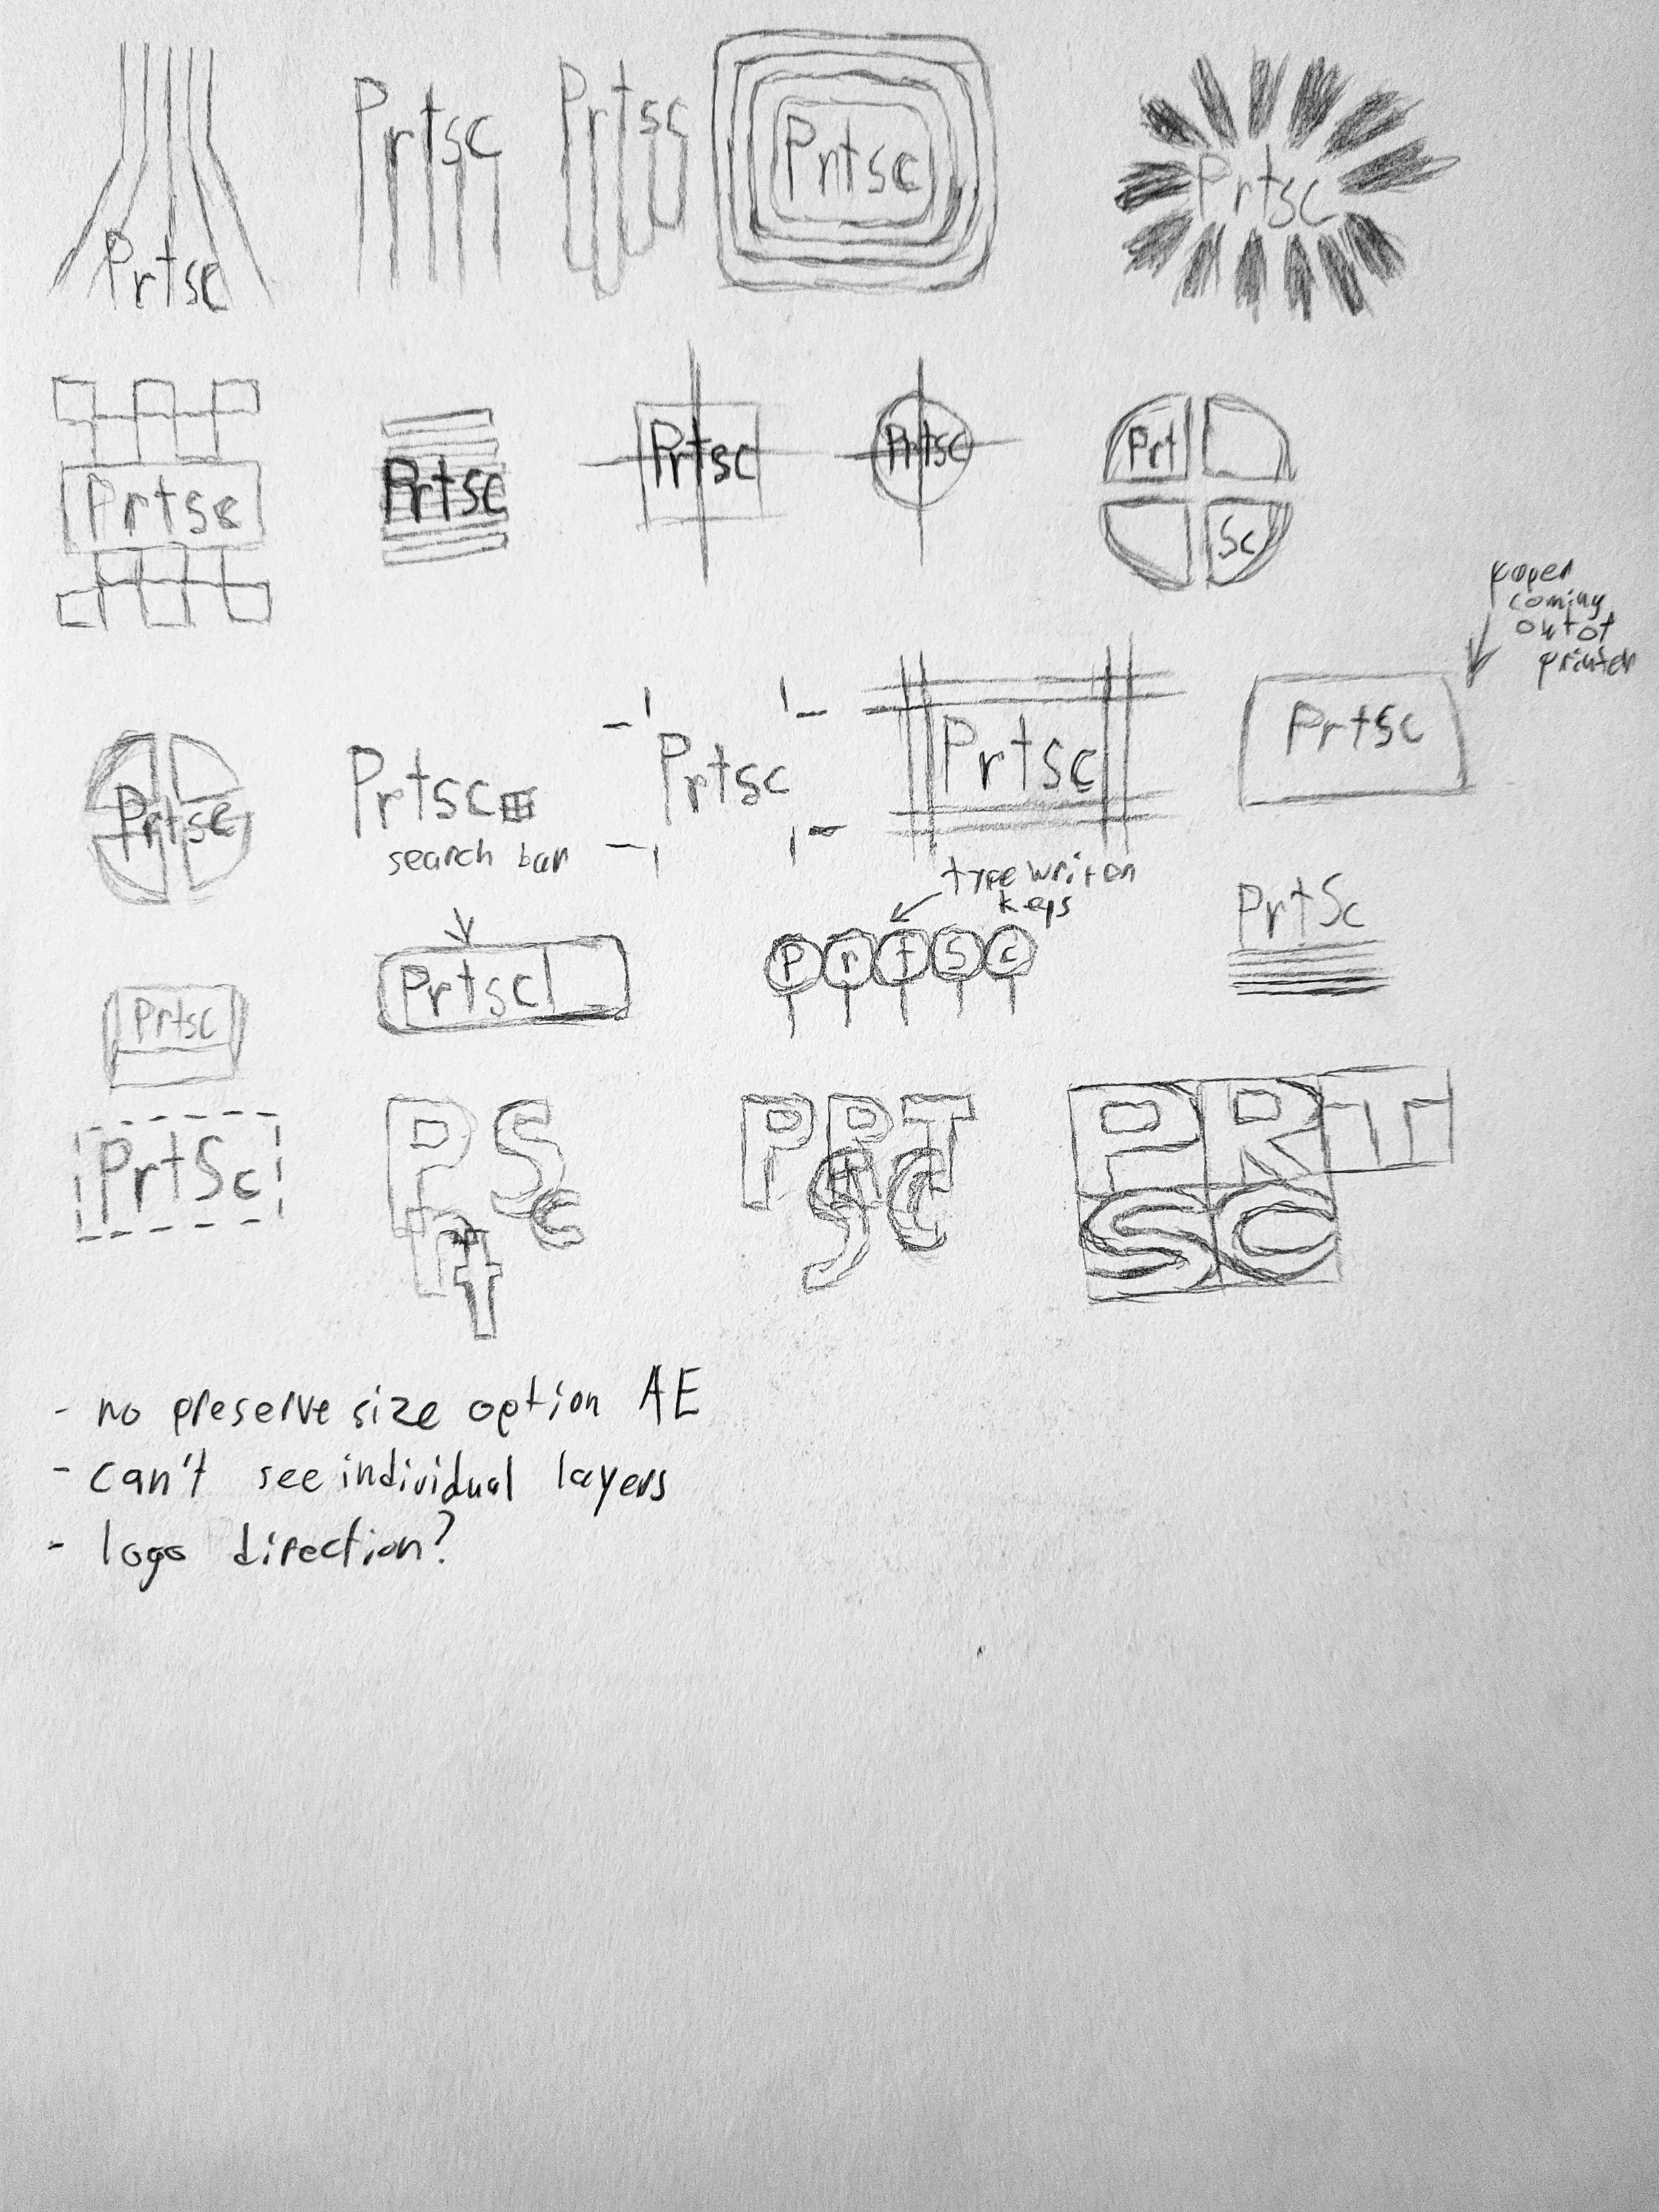 Prtsc
Prtsc
Prtsc
Prtsc
Prtsc
Prtsc
Prtsc
Prtsc
Prtsc
Prt
Sc
paper
coming
out of
printer
Prtsc
Prtsc
search bar
Prtsc
Prtsc
Prtsc
typewriter
keys
Prtsc
Prtsc
P r t s c
PrtSc
PrtSc
P S
r c
t
PRT
SC
PRT
SC
- no preserve size option AE
- can't see individual layers
- logo direction?